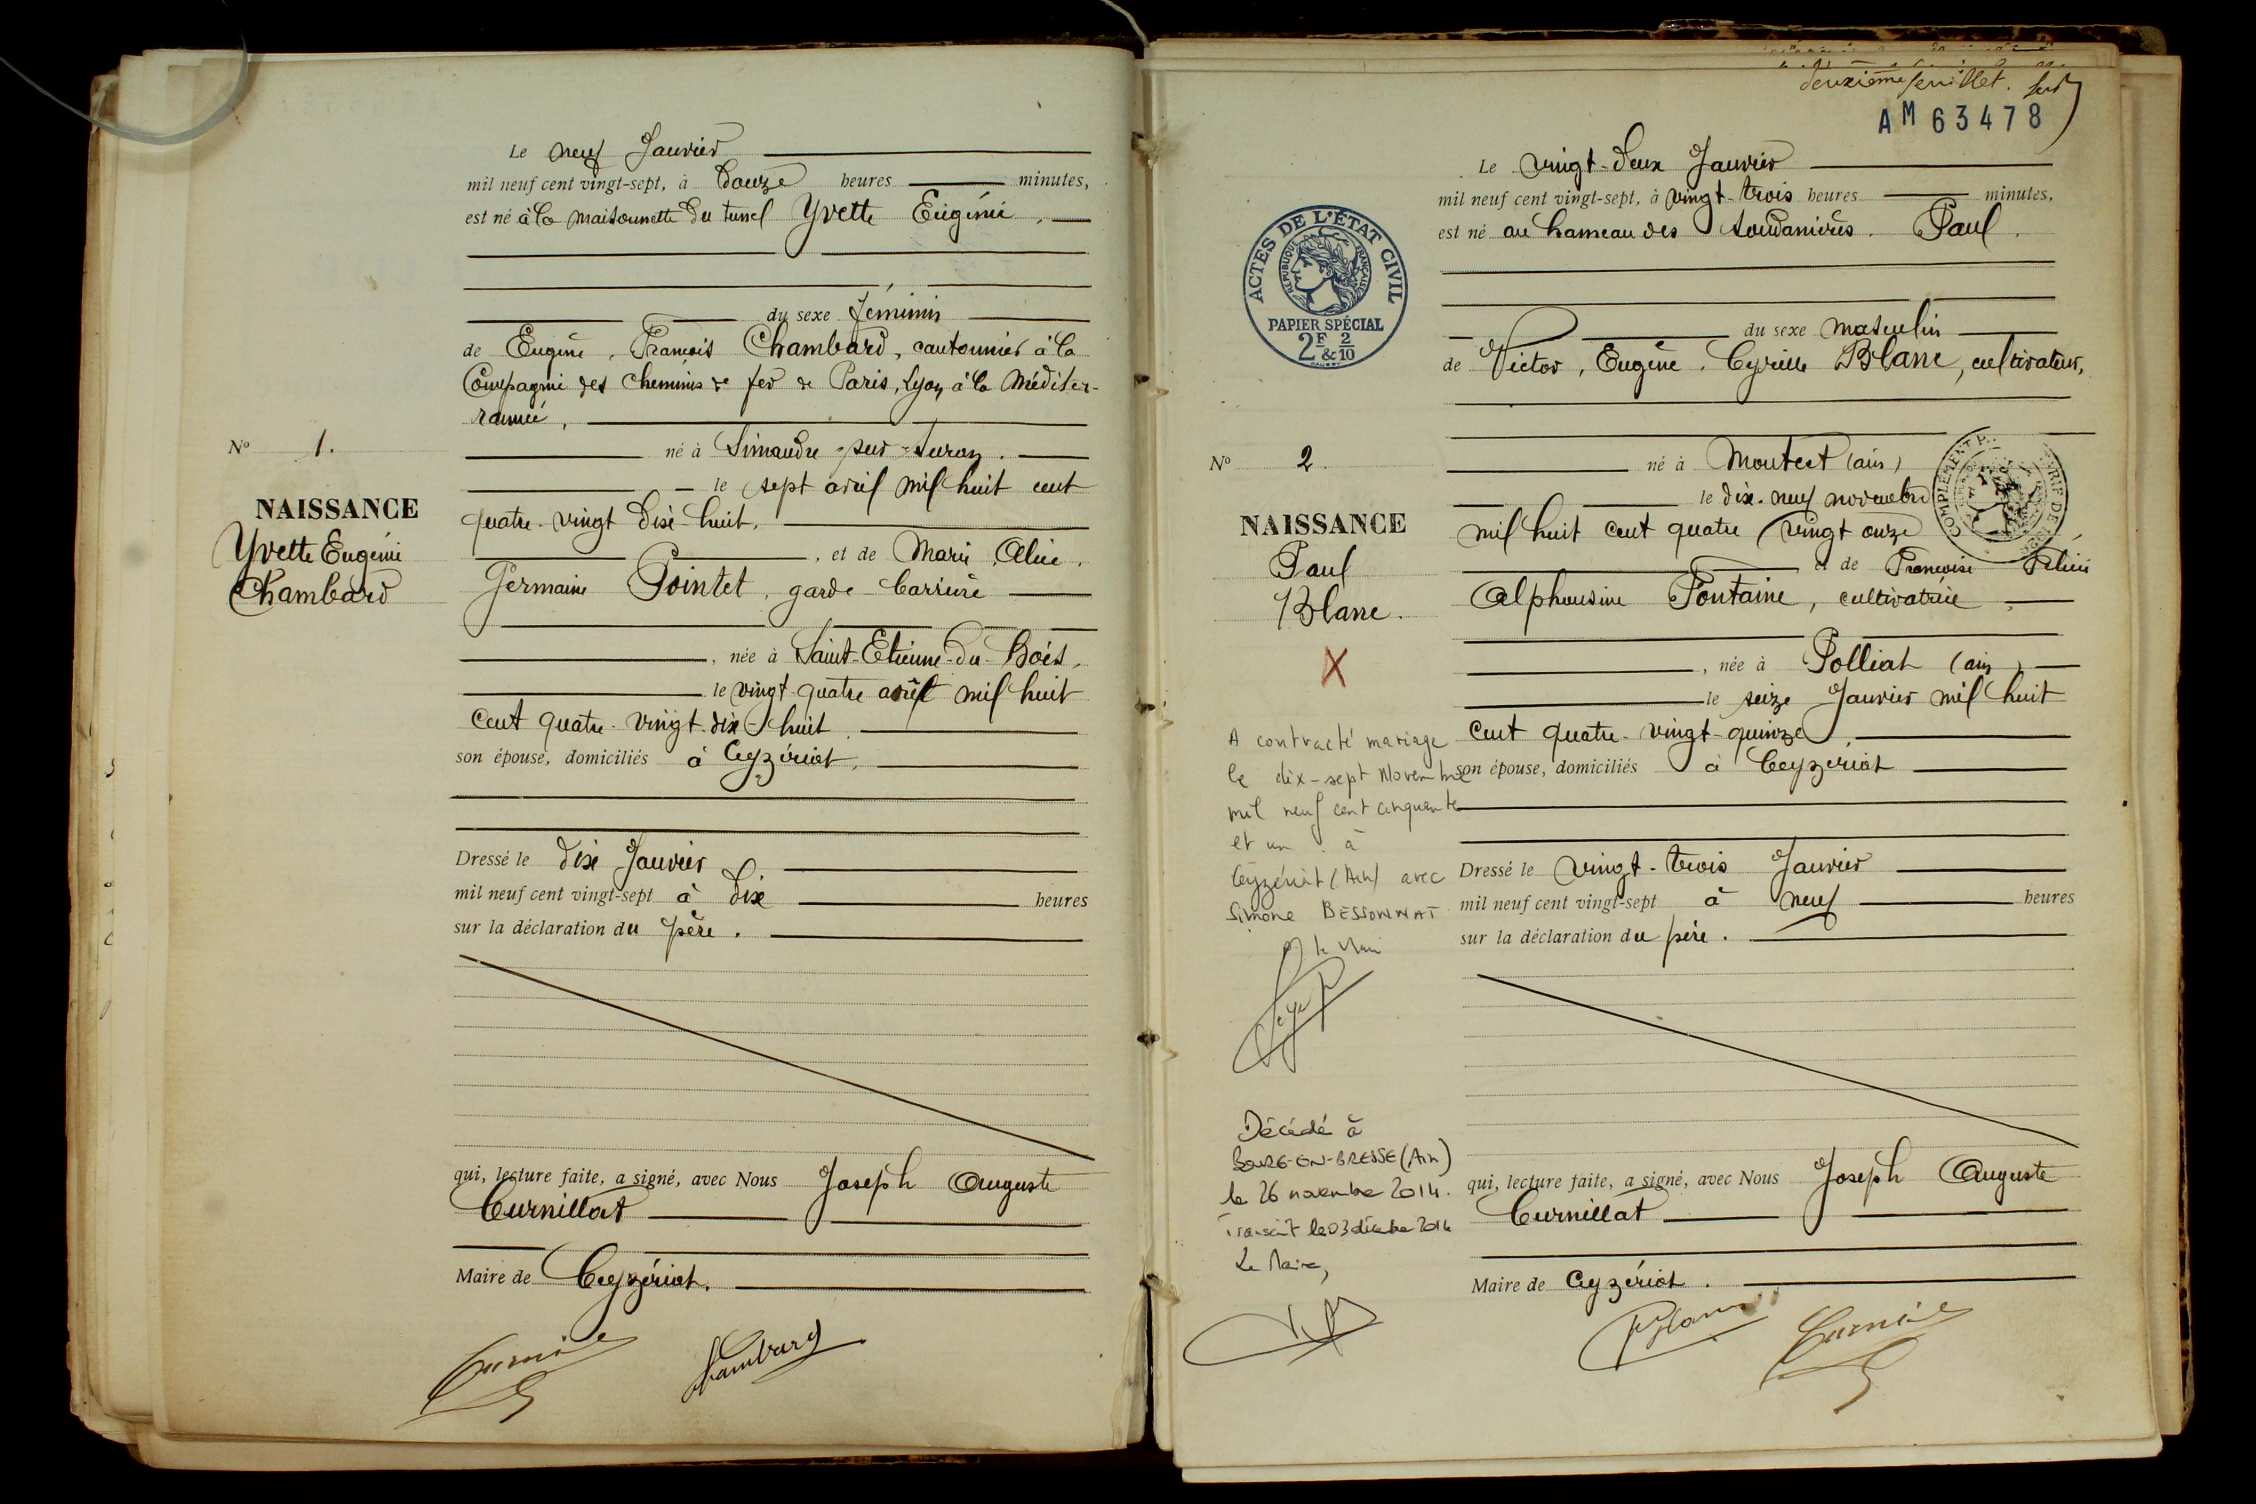 Le neuf Janvier
mil neuf cent vingt-sept, à douze heures minutes,
est né à la maisonnette du tunel Yvette Eugénie,
du sexe féminin
de Eugène, François Chambard, cantonnier à la
Compagnie des chemins de fer de Paris, Lyon à la Méditer-
rannée,
né à Simandre-sur-Suran.
le sept avril mil huit cent
quatre-vingt dix-huit,
, et de Marie, Alice,
Germaine Pointet, garde-barrière
, née à Saint-Etienne-du-Bois,
le vingt-quatre août mil huit
cent quatre-vingt-dix-huit
son épouse, domiciliés à Ceyzériat,
Dressé le dix Janvier
mil neuf cent vingt-sept à dix heures
sur la déclaration du père.
qui, lecture faite, a signé, avec Nous Joseph Auguste
Curnillat
Maire de Ceyzériat.
Chambard
No 1.
NAISSANCE
Yvette Eugénie
Chambard
deuxième feuillet.
AM 63478
Le vingt-deux Janvier
mil neuf cent vingt-sept, à vingt-trois heures minutes,
est né au hameau des Soudanières. Paul.
du sexe masculin
de Victor, Eugène, Cyrille Blanc, cultivateur,
né à Montcet (ain)
le dix-neuf novembre
mil huit cent quatre vingt onze
et de Françoise Félicie
Alphonsine Fontaine, cultivatrice
, née à Polliat (ain)
le seize Janvier mil huit
cent quatre-vingt-quinze,
son épouse, domiciliés à Ceyzériat
Dressé le vingt-trois Janvier
mil neuf cent vingt-sept à neuf heures
sur la déclaration du père.
qui, lecture faite, a signé, avec Nous Joseph Auguste
Curnillat
Maire de Ceyzériat.
Blanc
ACTES DE L'ÉTAT CIVIL
RÉPUBLIQUE FRANÇAISE
PAPIER SPÉCIAL
2F & 2/10
COMPLÉMENT
No 2.
NAISSANCE
Paul
Blanc.
X
A contracté mariage
le dix-sept Novembre
mil neuf cent cinquante
et un à
Ceyzériat (Ain) avec
Simone BESSONNAT
Décédé à
BOURG-EN-BRESSE (Ain)
le 26 novembre 2014.
Transcrit le 03 décembre 2014
Le Maire,